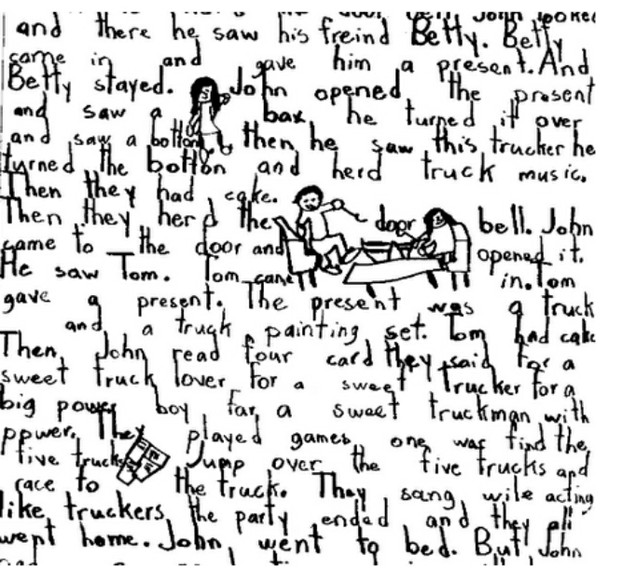 door bell John looked
and there he saw his freind Betty. Betty
came in and gave him a present. And
Betty stayed. John opened the present
and saw a box he turned it over
and saw a botton, then he saw this trucker he
turned the botton and herd truck music.
Then they had cake.
Then they herd the door bell. John
came to the door and opened it.
He saw Tom. Tom came in. Tom
gave a present. The present was a truck
and a truck painting set. Tom had cake
Then, John read four card they said for a
sweet truck lover for a sweet trucker for a
big power boy for a sweet truckman with
ppwer. They played games, one was find the
five trucks Jump over the five trucks and
race to the truck. They sang wile acting
like truckers, the party ended and they all
went home. John went to bed. But John